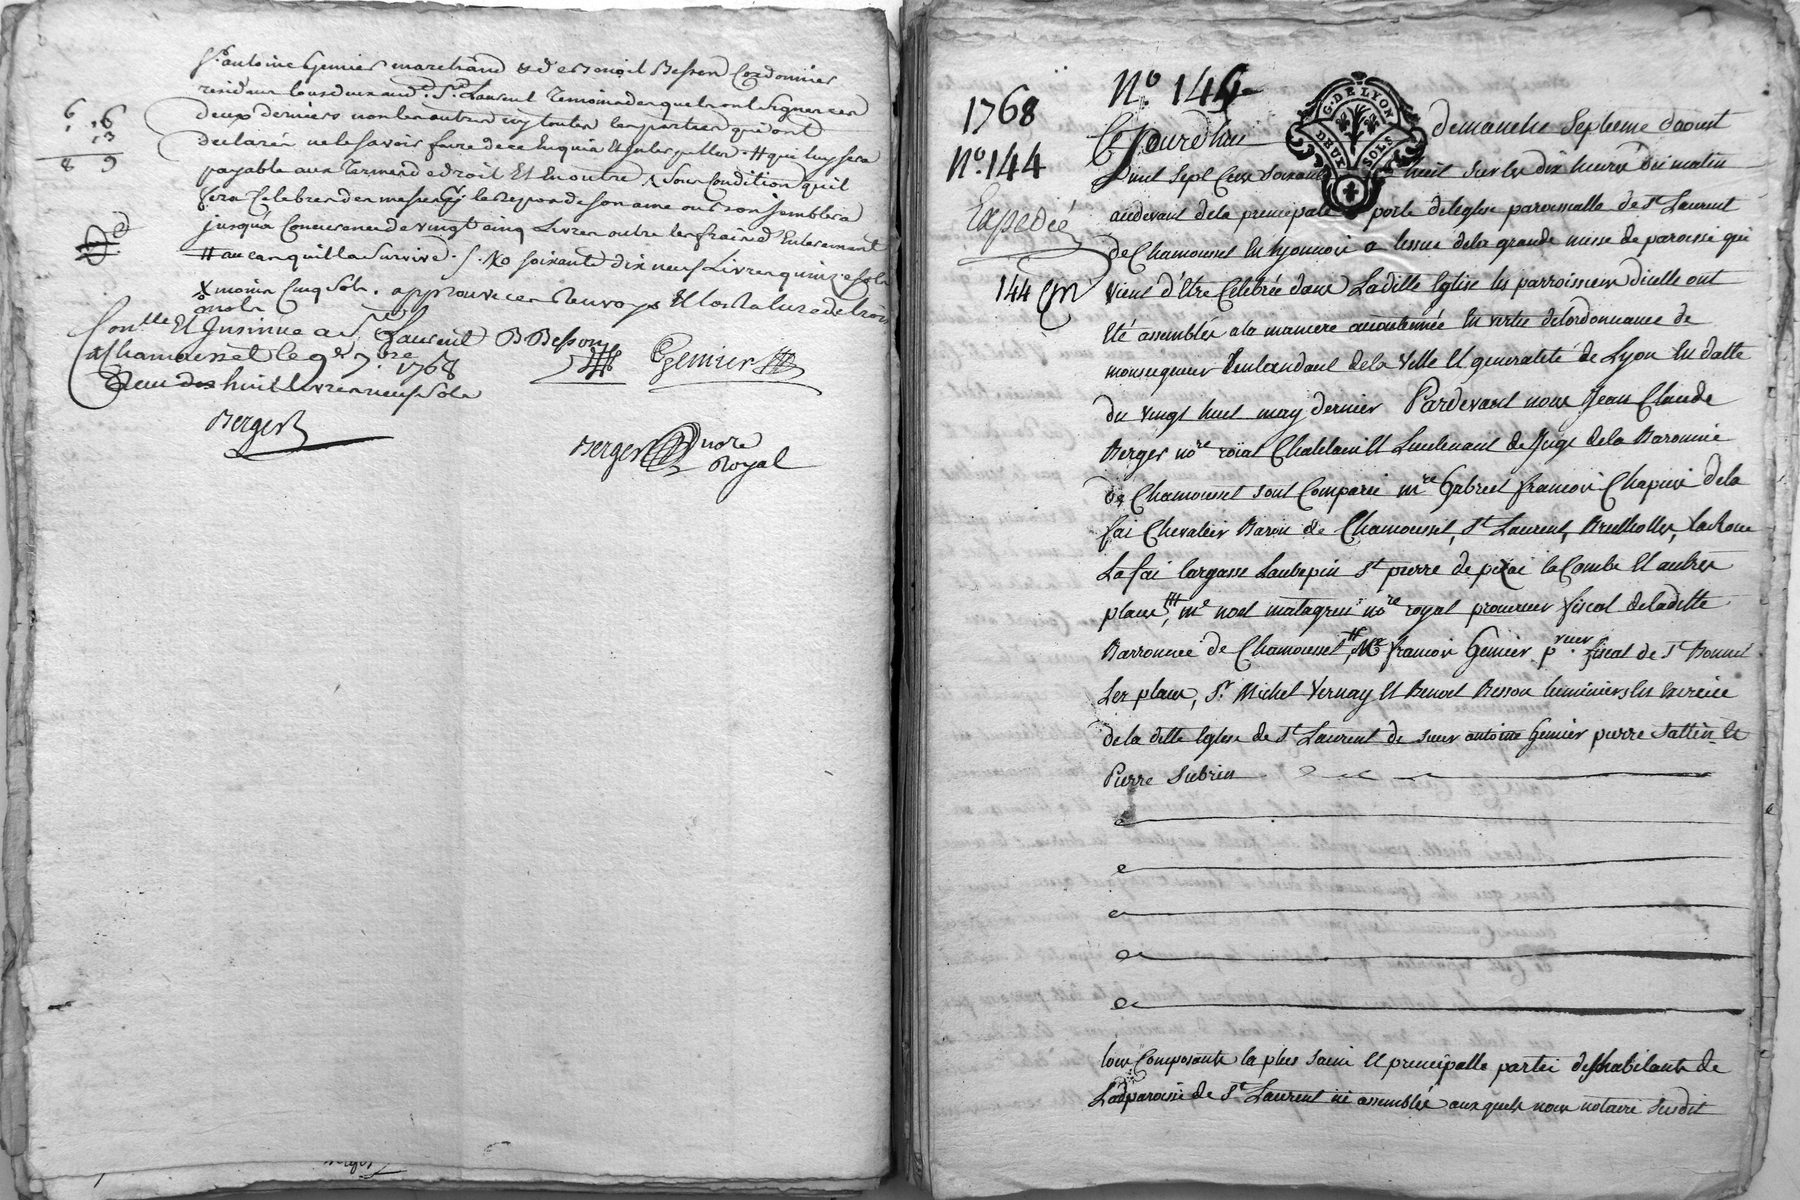 Sr antoine Gemier marchand & de Benoit Besson Cordonnier
residans tous deux aud. St. Laurent temoins desquels ont signer ces
deux derniers non les autres ny toutes les parties qui ont
declaré ne le savoir faire de ce Enquis Et interpellés. # qui luy sera
payable aux termes de droit Et En outre x sous Condition quil
fera Celebrer des messes pr le Repos de son ame ou bon semblera
jusqua Concurance de vingt cinq Livres outre les frais d'Enterement
# au cas quil la survive. /. Xo soixante dix neuf Livres quinze sols
X moins Cinq sols. approuvé ces Renvoys Et la Rature de trois
mots
6 16
13
8 9
Conlle Et Insinué a St. Laurent
de Chamousset le 9e 7bre 1768
Reçu huit livres neuf sols
Berger
B Besson
Gemier
Berger nore
Royal
1768
No. 144
Expedié
144
No. 144
G. DE LYON
DEUX SOLS
Cejourdhui demanche septieme daoust
mil sept Cent soixante huit sur les dix heures du matin
audevant dela principale porte deleglise paroissialle de St Laurent
de Chamousset En Lyonnois a lissue dela grande messe de paroisse qui
vient d'être Célébrée dans Laditte Eglise les parroissiens dicelle ont
été assemblés a la maniere accoutumée En vertu de lordonnance de
monseigneur Lintandant dela Ville Et generalité de Lyon En datte
du vingt huit may dernier Pardevant nous Jean Claude
Berger nore roial Chatelain Et Lieutenant de Juge dela Baronnie
de Chamousset sont Comparu mre Gabriel françois Chapuis dela
fai Chevalier Baron de Chamousset, St Laurent, Brulliolles, La Roue
La fai Largasse Laubepin St pierre de La Combe Et autres
places, me noel matagrin nore royal procureur fiscal deladitte
Barronnie de Chamousset, Me françois Gemier pr. fiscal de St Bonnet
Les places, Sr. Michel Vernay Et Benoit Besson luminiers En Exercice
dela ditte Eglise de St Laurent de sieur antoine Gemier pierre Et
Pierre Subrin
tous Composants la plus saine Et principalle partie des habitants de
Ladparoisse de St Laurent icy assemblés auxquels nous notaire susdit